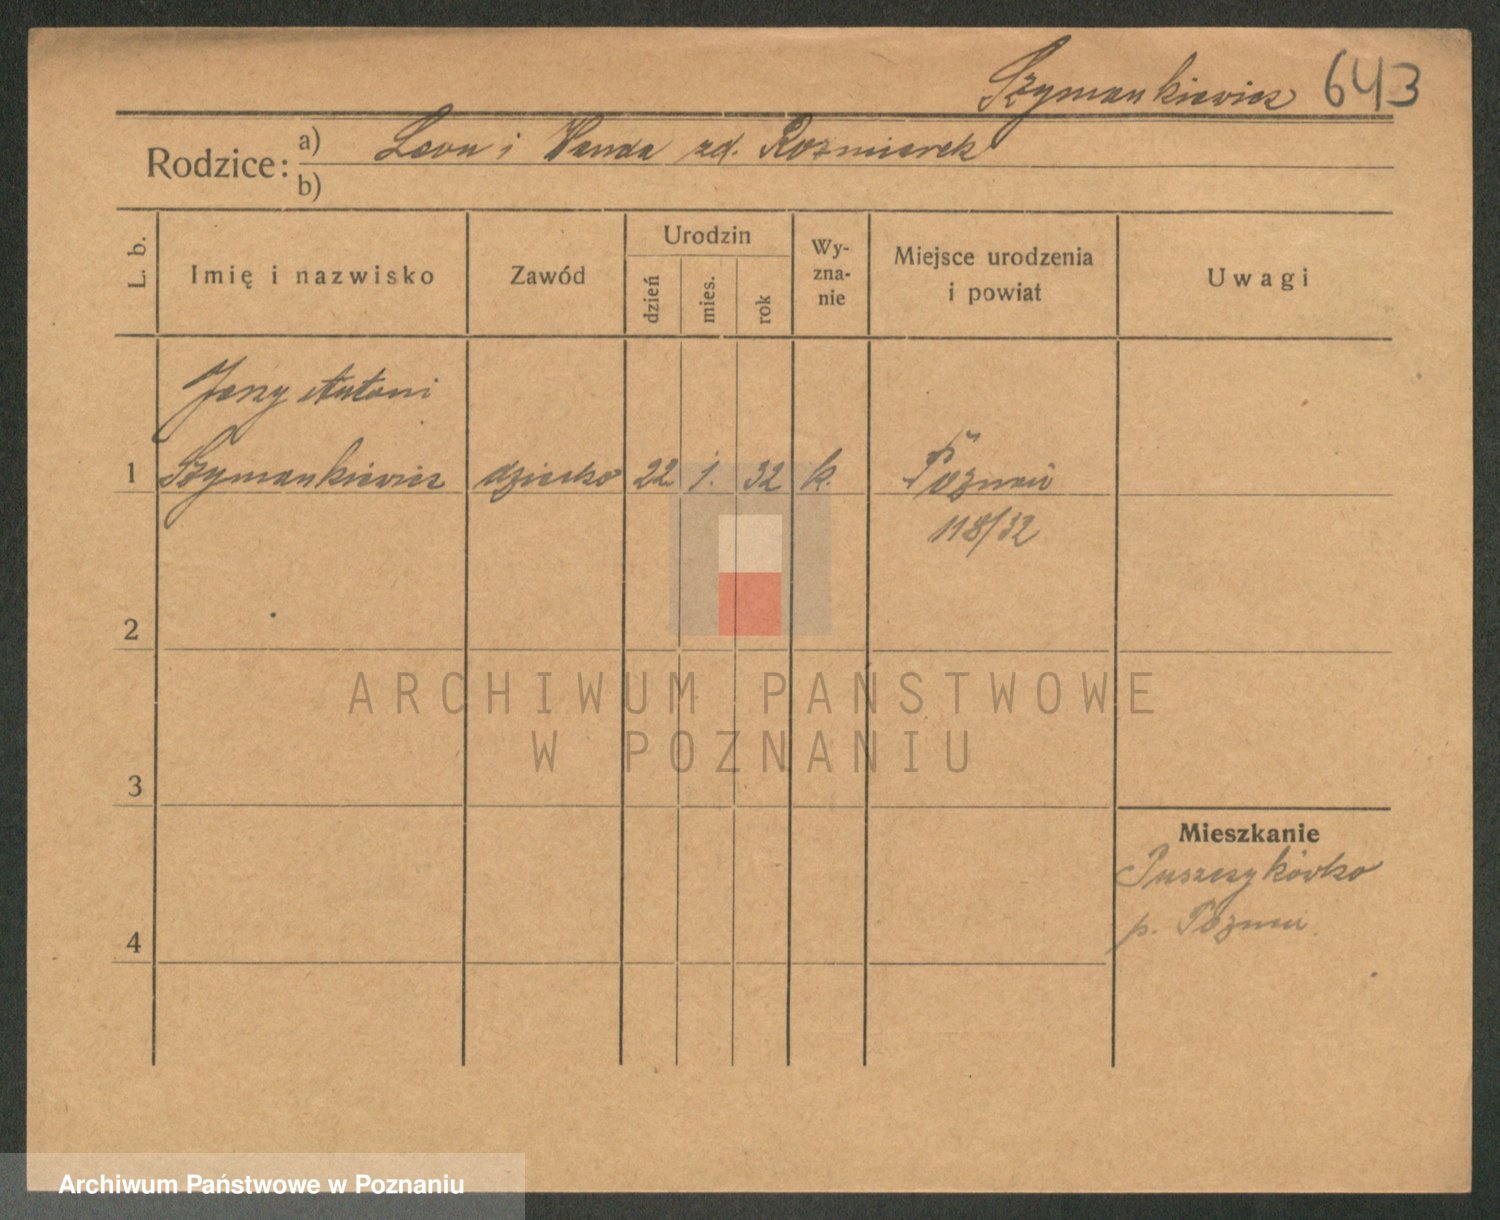 Szymankiewicz 643
Rodzice: a) Leon i Wanda zd. Rozmiarek
b)
L. b. Imię i nazwisko Zawód Urodzin dzień mies. rok Wy-zna-nie Miejsce urodzenia i powiat Uwagi
Jerzy Antoni
1 Szymankiewicz dziecko 22. 1. 32 k. Poznań
118/32
2
ARCHIWUM PAŃSTWOWE
W POZNANIU
3
Mieszkanie
Puszczykówko
4 p. Poznań
Archiwum Państwowe w Poznaniu